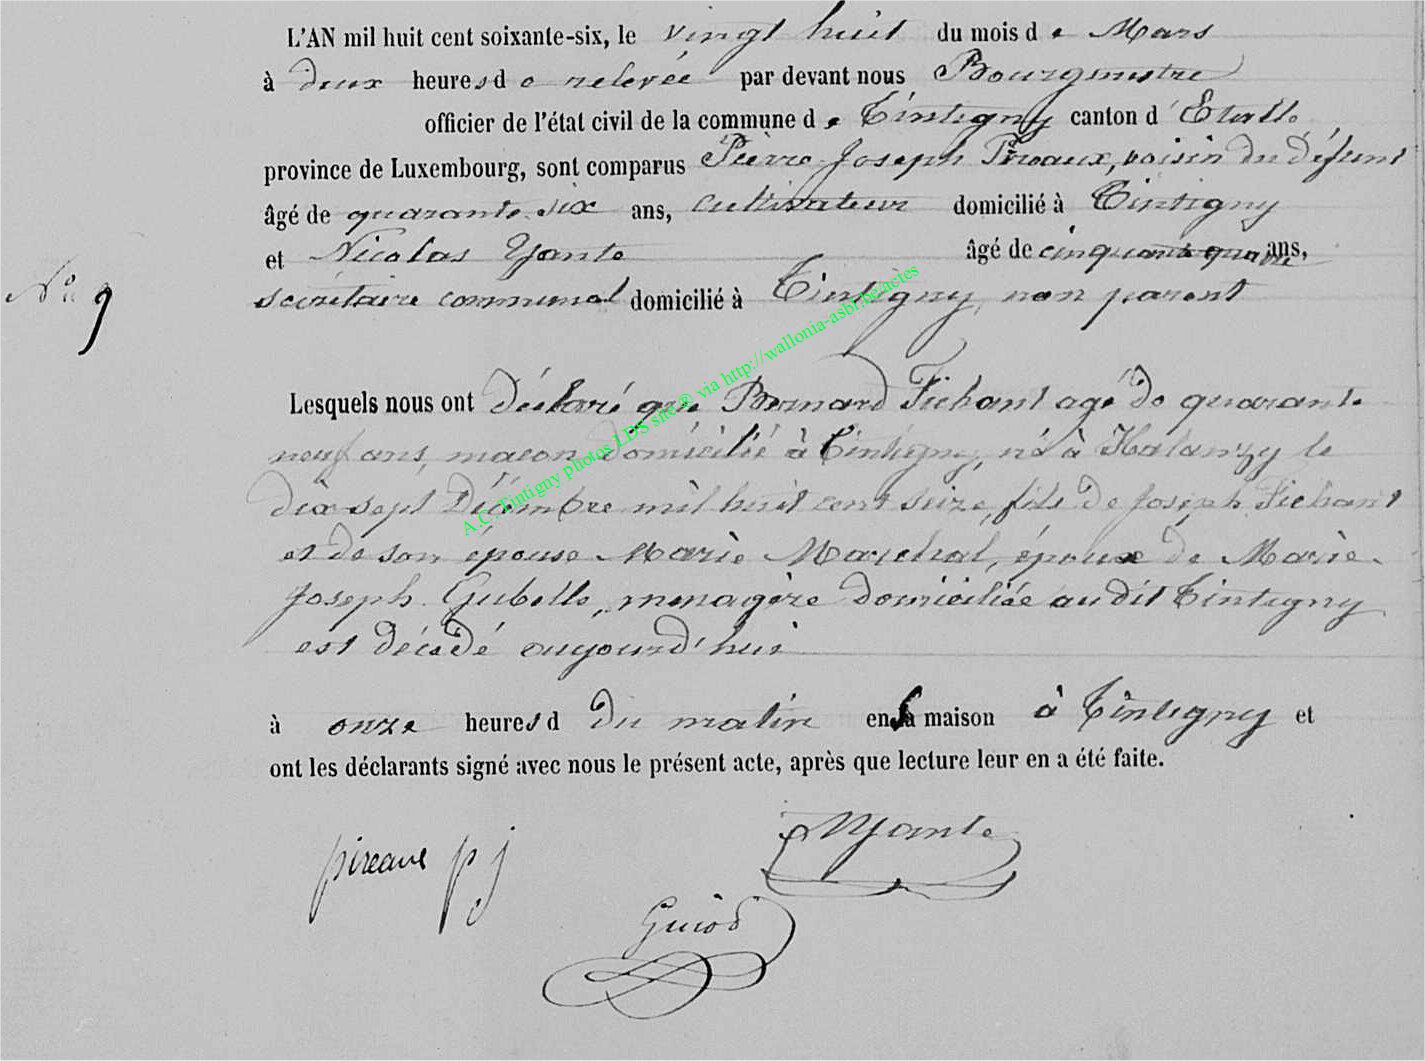 L'AN mil huit cent soixante-six, le vingt huit du mois d e Mars
à deux heures d e relevée par devant nous Bourgmestre
officier de l'état civil de la commune d e Tintigny canton d' Etalle
province de Luxembourg, sont comparus Pièrre Joseph Pireaux, voisin du défunt
âgé de quarante six ans, cultivateur domicilié à Tintigny
et Nicolas Yante âgé de cinquante quatre ans,
N° 9
secrétaire communal domicilié à Tintigny, non parent
Lesquels nous ont déclaré que Bernard Fichant agé de quarante
neuf ans, maçon domicilié à Tintigny, né à Halanzy le
dix sept Décembre mil huit cent seize, fils de Joseph Fichant
et de son épouse Marie Marchal, époux de Marie
Joseph Gubelle, menagère domiciliée au dit Tintigny
est décédé aujourd'hui
à onze heures d du matin en sa maison à Tintigny et
ont les déclarants signé avec nous le présent acte, après que lecture leur en a été faite.
pireaux p j
NYante
Guiod
A.C. Tintigny photos LDS site® via http://wallonia-asbl.be/actes